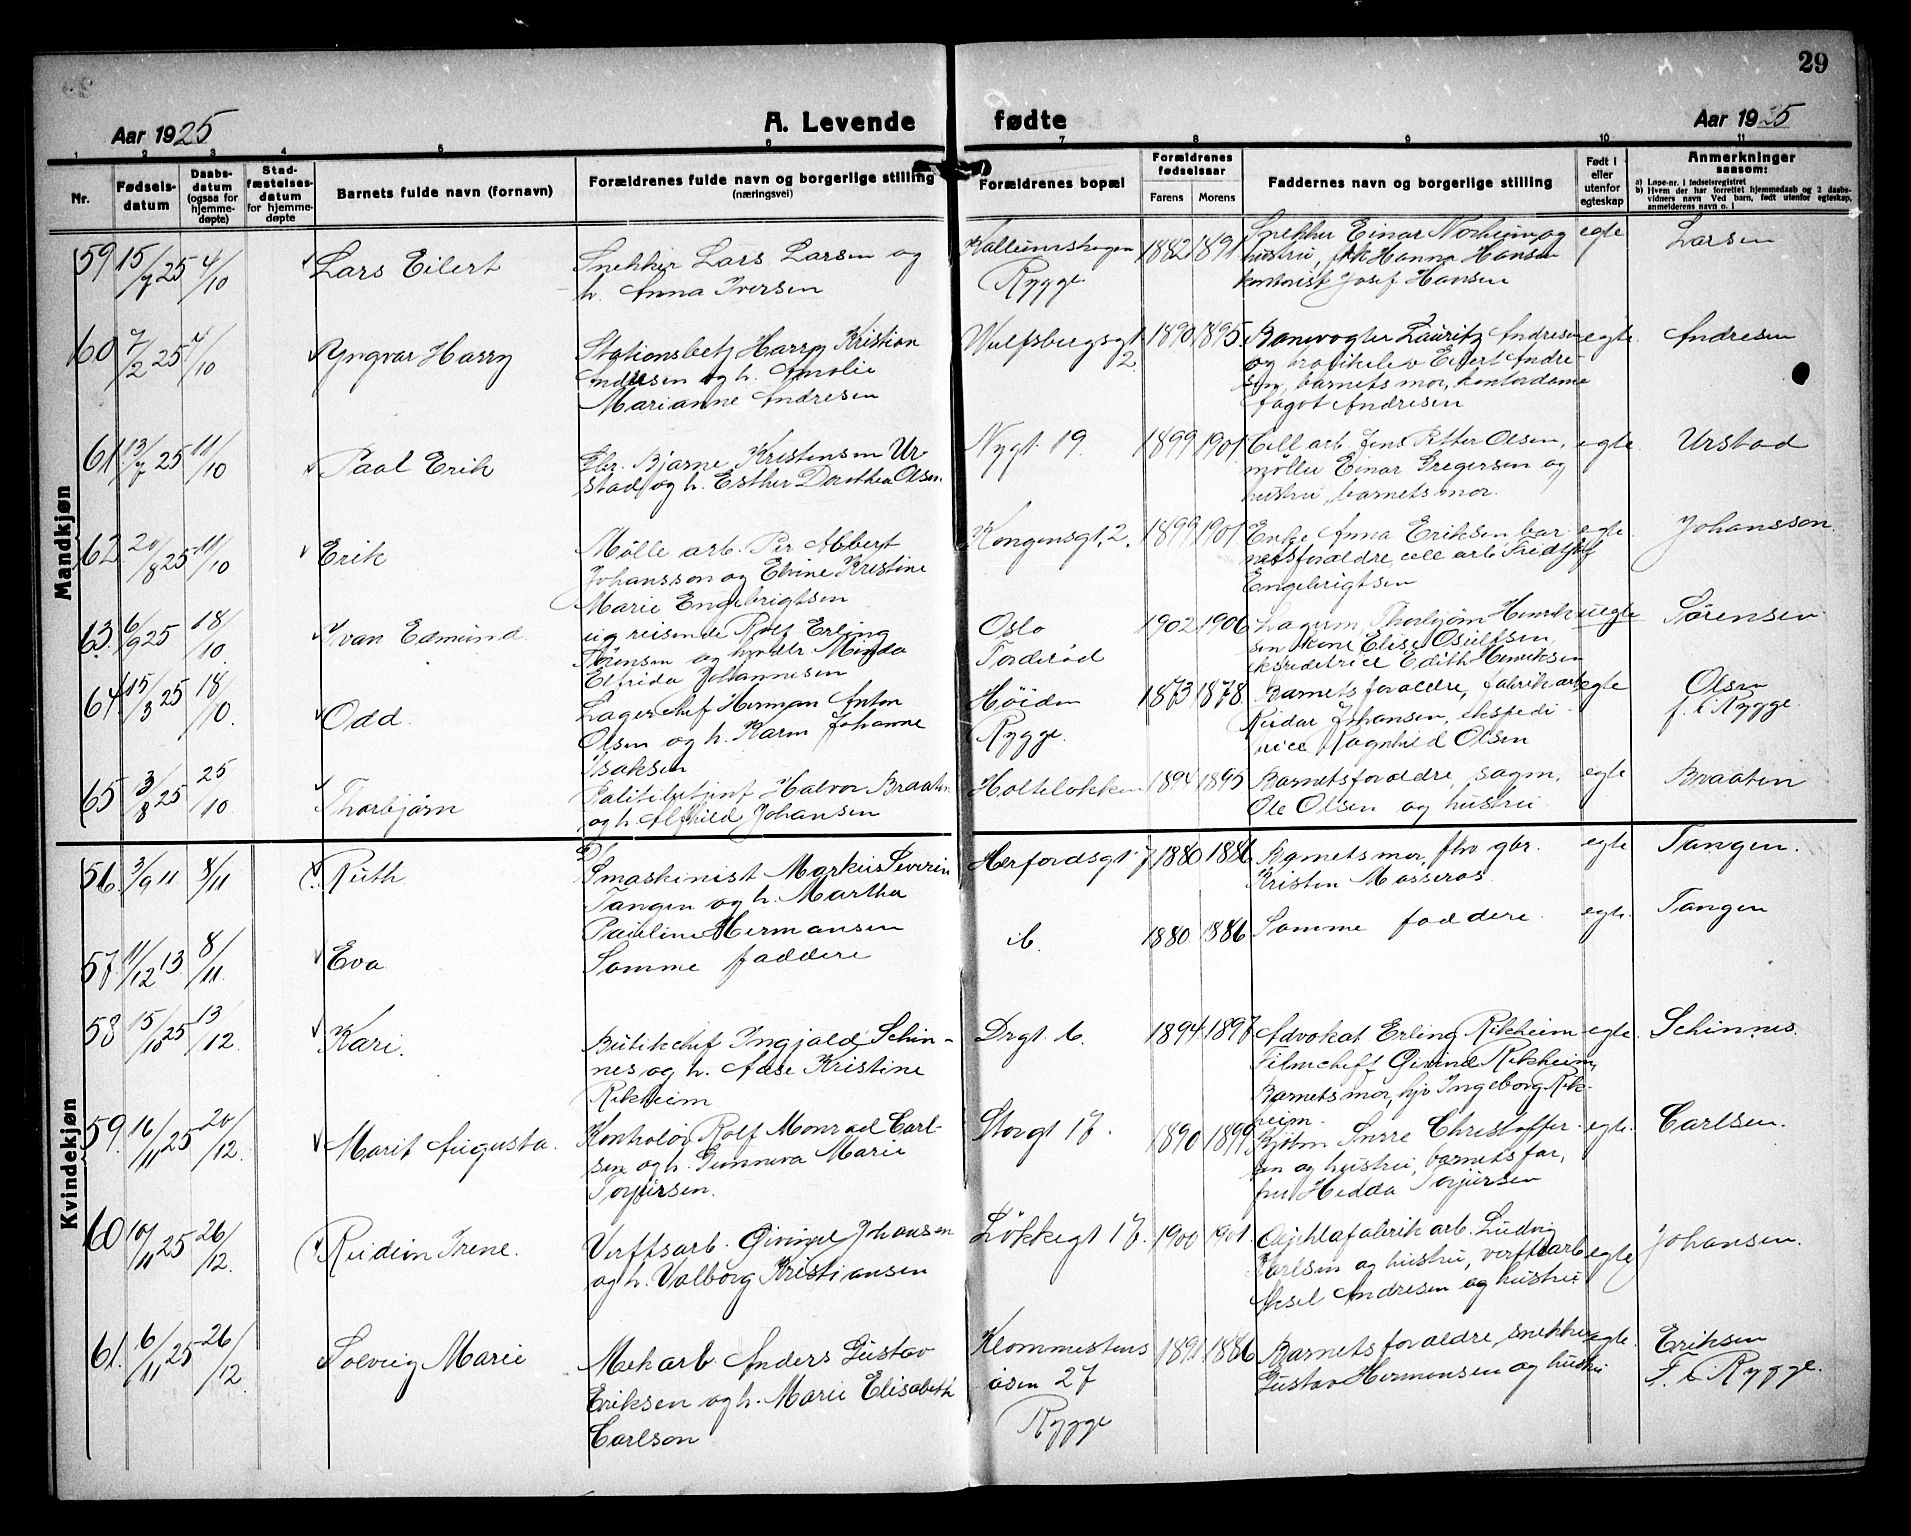 29
Aar 1925 A. Levende fødte Aar 1925
1 2 3 4 5 6 7 8 9 10 11
Nr. Fødsels-datum Daabs-datum (ogsaa for hjemme-døpte) Stad-fæstelses-datum for hjemme-døpte Barnets fulde navn (fornavn) Forældrenes fulde navn og borgerlige stilling (næringsvei) Forældrenes bopæl Forældrenes fødselsaar Farens Morens Faddernes navn og borgerlige stilling Født i eller utenfor egteskap Anmerkninger saasom:
a) Løpe-nr. i fødselsregistret
b) Hvem der har forrettet hjemmedaab og 2 daabs-vidners navn Ved barn, født utenfor egteskap, anmelderens navn o. l
Mandkjøn
59 15/7 25 4/10 Lars Eilert Snekker Lars Larsen og Rygge 1882 1891 Snekker Einar Norheim og egte Larsen
h. Anna Iversen hustru, frk Hanna Hansen
kontorist Josef Hansen
60 7/2 25 4/10 Yngvar Harry Stationsbetj Harry Kristian Wulfsbergsgt 2 1890 1895 Banevogter Lauritz Andresen egte Andresen
Andresen og h. Amalie og trafikelev Eilert Andre-
Marianne Andresen sen, barnets mor, kontordame
Aagot Andresen
61 13/7 25 11/10 Paal Erik Gbr. Bjarne Kristensen Ur- Nygt. 19. 1899 1901 Cell arb. Jens Petter Olsen, egte Urstad
stad og h. Esther Dorothea Olsen møller Einar Gregersen og
hustru, barnets mor.
62 20/8 25 11/10 Erik Mølle arb. Per Albert Kongensgt. 2. 1899 1901 Enke Anna Eriksen bar- egte Johansson.
Johansson og Elvine Kristine netsforældre, cell arb. Fridtjof
Marie Engebrigtsen Engebrigtsen
63. 6/9 25 18/10 Ivan Edmund ug reisende Rolf Erling Oslo 1902 1906 Lagerm, Thorbjørn Henrik- uegte Sørensen
Sørensen og Minda Torderød sen kone Elise
Elfrida Johannesen ekspeditrice Edith Henriksen
64. 15/3 25 18/10. Odd. Lagerchef Herman Anton Høiden 1873 1878 Barnets forældre, fabrik arb. egte Olsen
Olsen og h. Karen Johanne Rygge. Reidar Johansen, ekspedi f. i Rygge.
Isaksen trice Ragnhild Olsen
65 3/8 25 25/10 Thorbjørn Politibetjent Halvor Braaten Holteløkken 1894 1895 Barnets forældre, sagm. egte Braaten
og h. Alfhild Johansen Ole Olsen og hustru
Kvindekjøn
56 3/9 11 8/11 Ruth Smaskinist Markus Severin Herfordsgt. 7 1880 1886 Barnets mor, fhv gbr. egte Tangen.
Tangen og h. Martha Kristen Masseros
Pauline Hermansen
57. 11/12 13 8/11. Eva Samme faddere ib. 1880 1886 Samme faddere. egte. Tangen
58 15/10 25 13/12. Kari. Butikchef Ingjald Schin- Drgt. 6. 1894 1897 Advokat Erling Rikheim egte. Schinnes.
nes og h. Aase Kristine Filmchef Øivind Rikheim,
Rikheim Barnets mor, Ingeborg Rik-
heim.
59. 16/11 25 20/12. Marit Augusta. Kontrolør Rolf Monrad Carl- Storgt 17. 1890 1899 Kjøbm Snrre Christoffer- egte. Carlsen.
sen og h. Gunneva Marie sen og hustru, barnets far,
Torjusen. fru Hedda Torjusen
60 10/11 25 26/12. Reidun Irene. Verftsarb. Øivind Johansen Løkkegt 17. 1900 1901. Karlsen og hustru, verftsarb egte Johansen.
og h. Valborg Kristiansen Aksel Andresen og hustru
61. 6/11 25 26/12 Solveig Marie Mek arb. Anders Gustav Klommestens 1891 1886 Barnets forældre, snekker egte. Eriksen
Eriksen og h. Marie Elisabeth åsen 27 Gustav Hermansen og hustru F. i Rygge.
Carlson Rygge